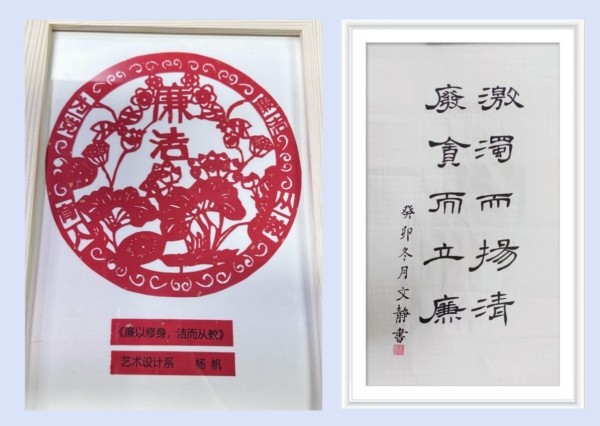 廉洁
《廉以修身，洁而从教》
艺术设计系 杨 帆
激濁而揚清
廢貪而立廉
癸卯冬月文靜書